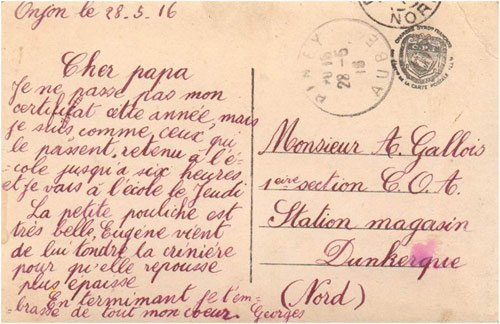 Onjon le 28.5.16
Cher papa
Je ne passe pas mon
certificat cette année, mais
je suis comme ceux qui
le passent, retenu a l'é-
cole jusqu'à six heures
et je vais à l'école le Jeudi
La petite pouliche est
très belle, Eugène vient
de lui tondre la crinière
pour qu'elle repousse
plus épaisse
En terminant je t'em-
brasse de tout mon coeur. Georges
PINEY
28-5
16
AUBE
NOR
Monsieur A. Gallois
1ère section C.O.A.
Station magasin
Dunkerque
(Nord)